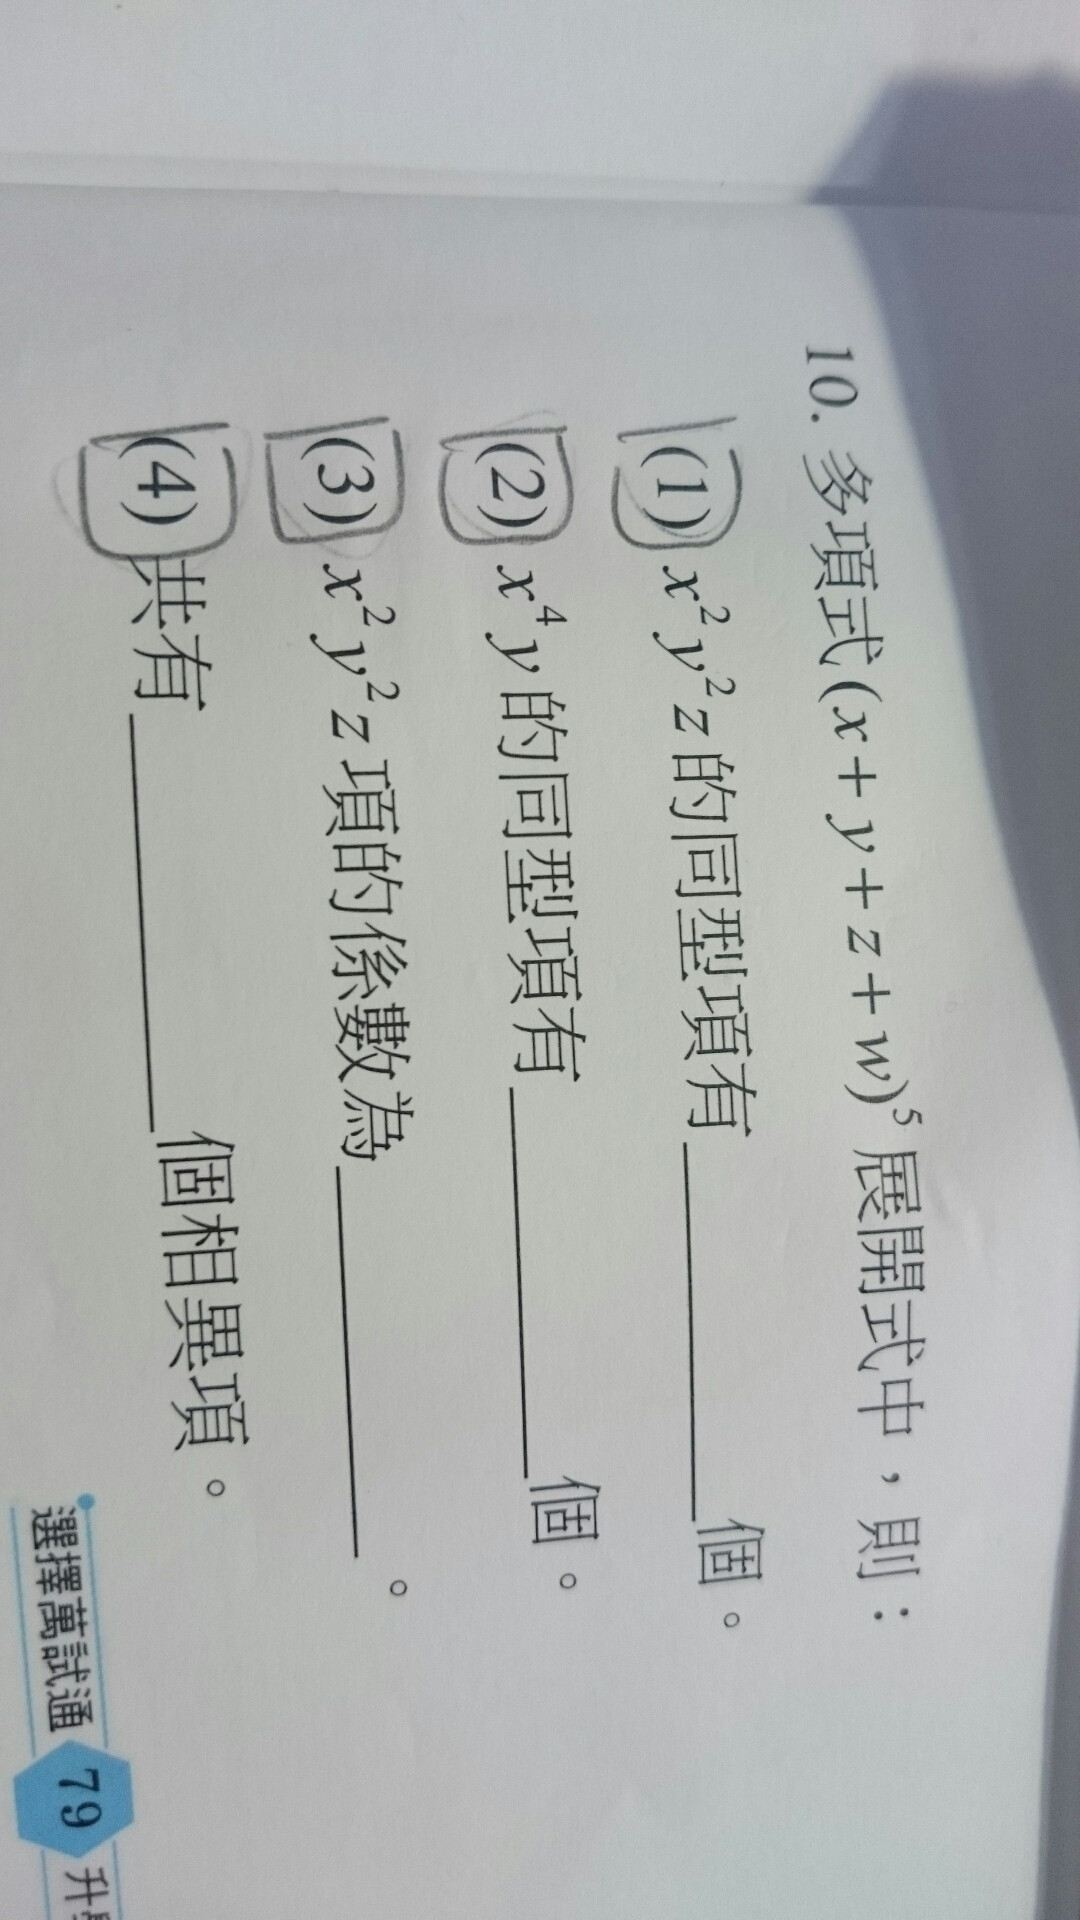 10. 多項式(x+y+z+w)⁵ 展開式中，則：
(1) x²y²z的同型項有＿＿＿＿個。
(2) x⁴y的同型項有＿＿＿＿個。
(3) x²y²z項的係數為＿＿＿＿。
(4)共有＿＿＿＿個相異項。
選擇萬試通 79 升